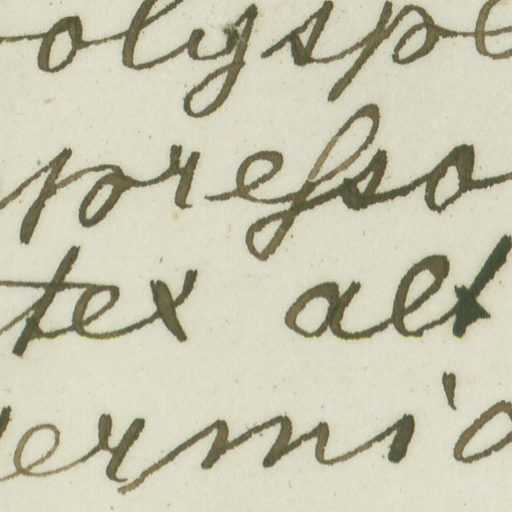 olyspe
presso
tex alt
ermi